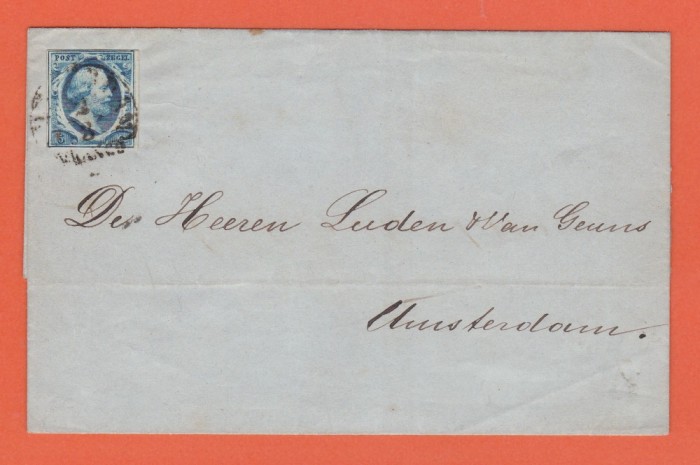 POST ZEGEL
5
8
FRANCO
Den Heeren Luden & Van Geuns
Amsterdam.